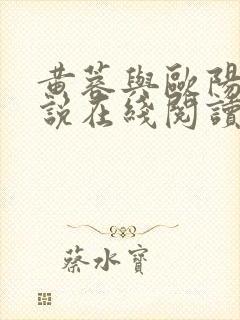 黄蓉與歐陽
說在綫閱讀
蔡水寶